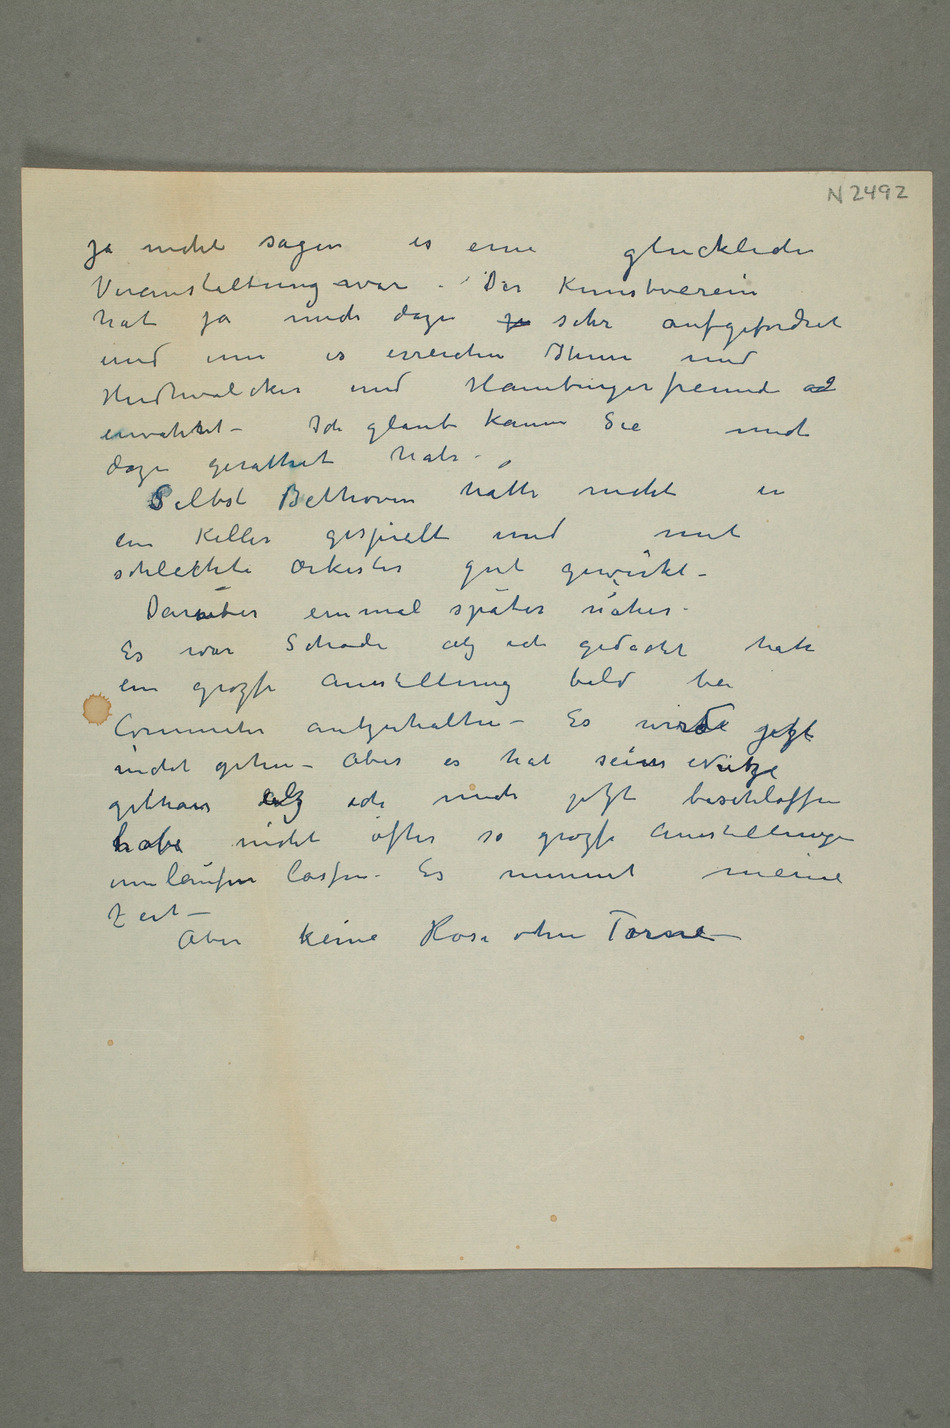 N 2492
ja nicht sagen es eine glückliche
Veranstaltung war. Der Kunstverein
hat ja mich dazu ja sehr aufgefordret
und um es erreichen Ihnen und
Hudtwalcker und Hamburgerfreunde
erwähnt – Ich glaube kaum Sie mich
dazu gerathet habe.
Selbst Bethoven hätte nicht in
ein Keller gespielt und mit
schlechte Orkester gut gewirkt –
Darüber einmal später näher.
Es war Schade alz ich gedacht hatte
ein grozse Ausstellung bald bei
Commeter antzuhalten – Es wird jetzt
nicht gehen – Aber es hat seine Nutze
gethan alz ich mich jetzt beschlossen
habe nicht öfter so grozse Ausstellungen
umlaufen lassen. Es nimmt meine
Zeit –
Aber keine Rose ohne Torne –